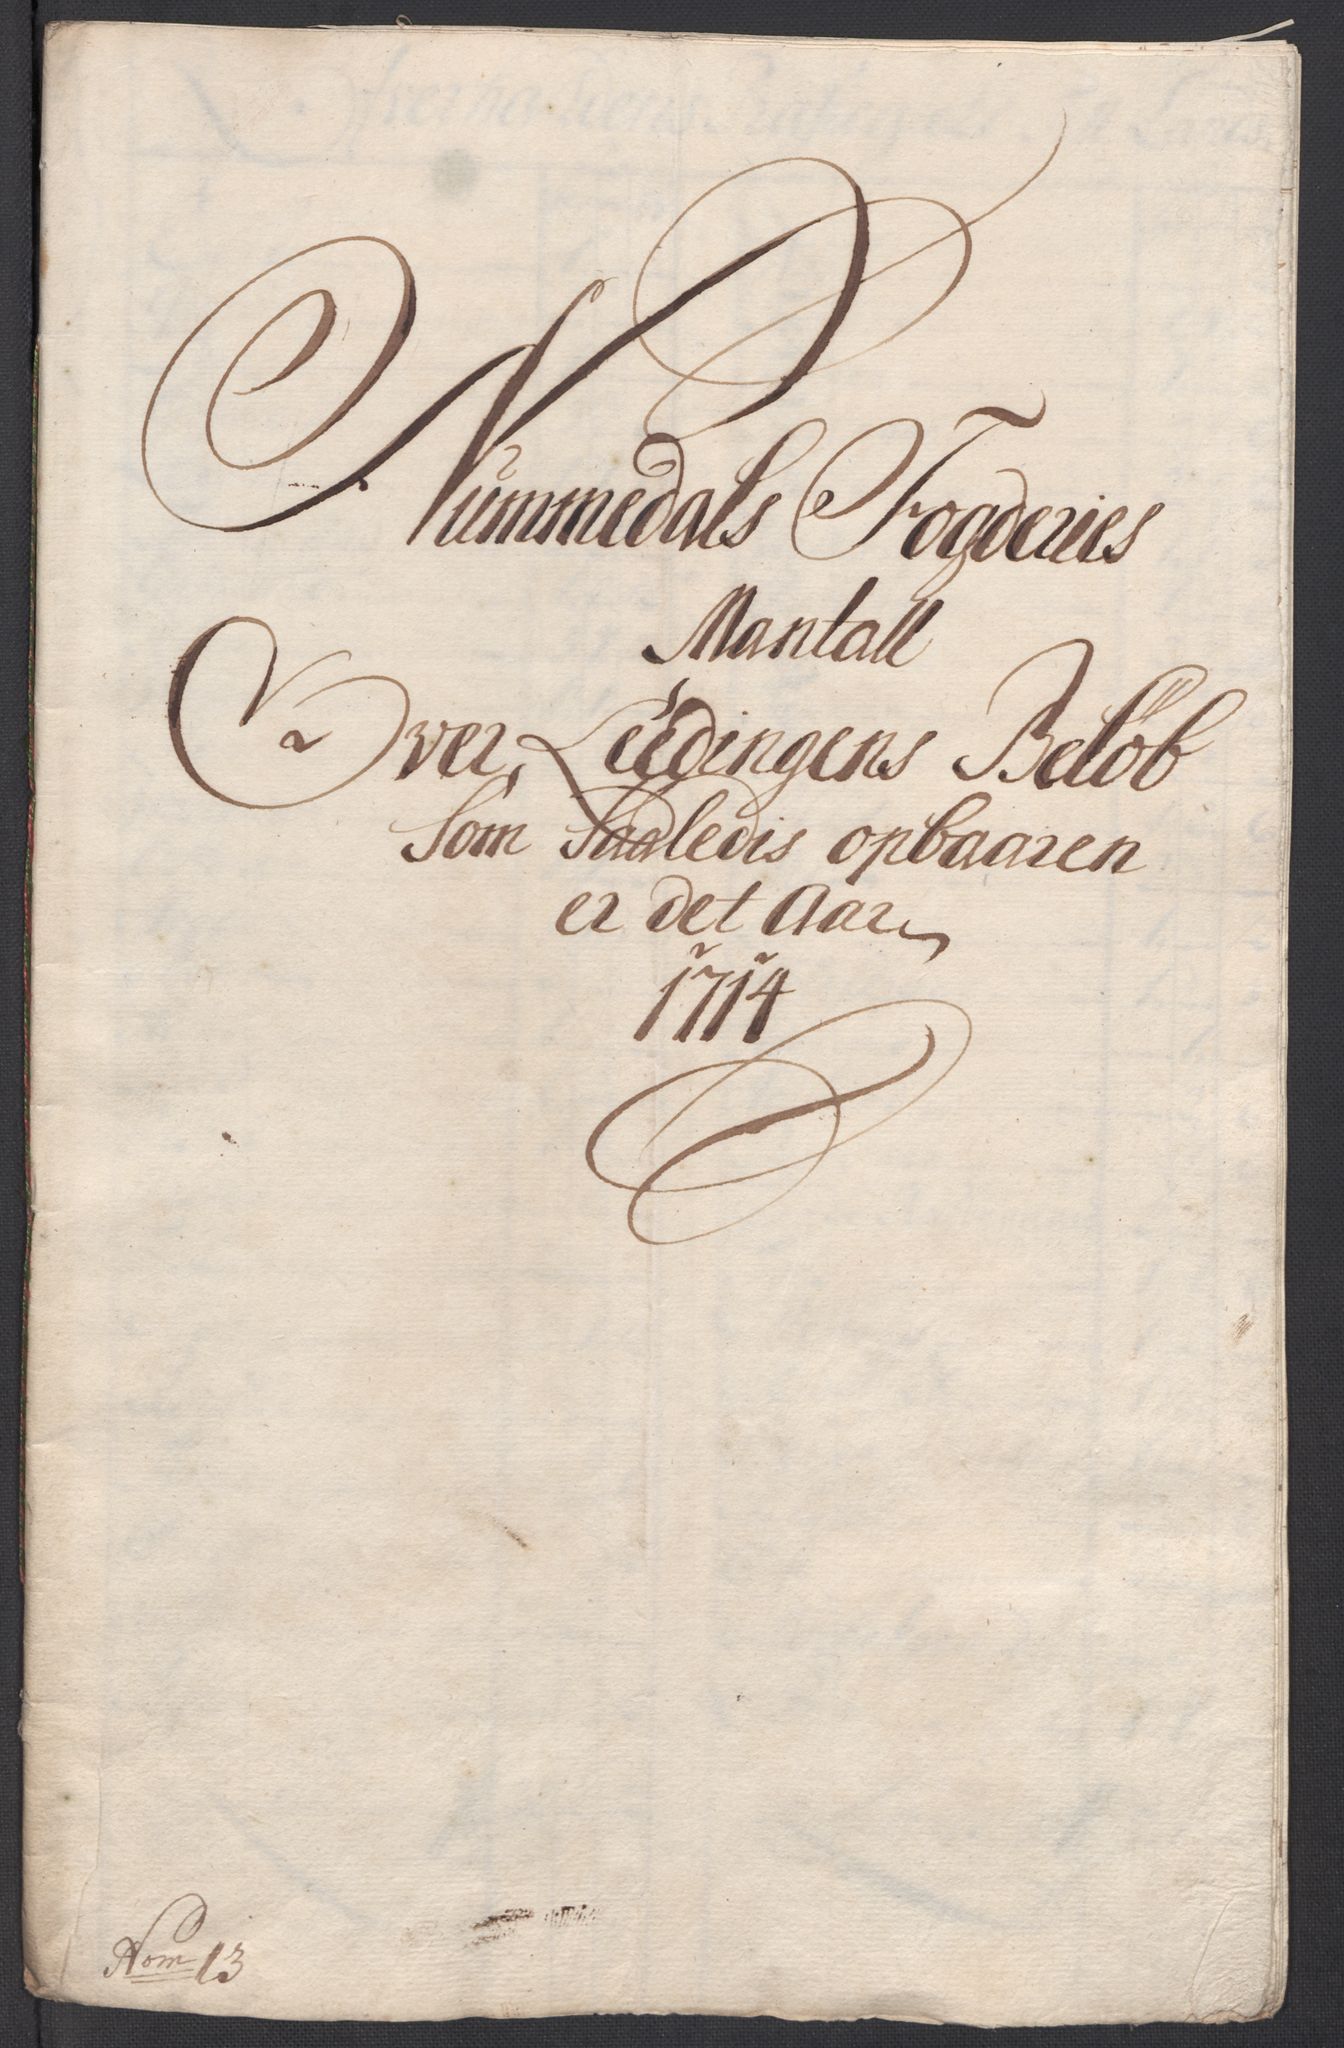 Nummedals Fogderies
Mantall
Over Leedingens Beløb
Som Saaledis opbaaren
er det Aar
1714
Nom 13